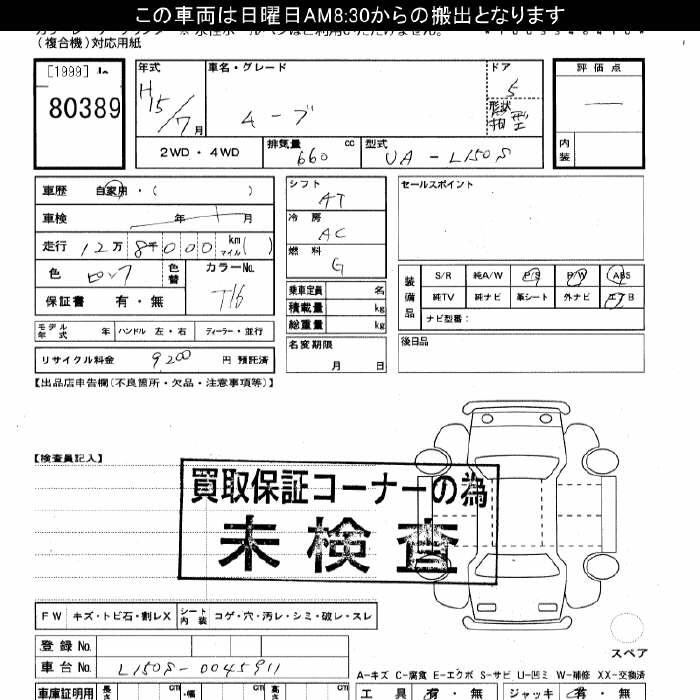 この車両は日曜日AM8:30からの搬出となります
(複合機)対応用紙
[1999]
80389
年式
H15/7月
車名・グレード
ムーブ
ドア
5
形状
箱型
評価点
内装
2WD・4WD
排気量
660
cc
型式
UA-L150S
車歴 自家用・( )
車検 年 月
走行 12万8千000 km マイル( )
色
色替
カラーNo.
T16
保証書 有・無
モデル年式 年 ハンドル 左・右 ディーラー・並行
リサイクル料金 9200 円 預託済
シフト
AT
冷房
AC
燃料
G
乗車定員 名
積載量 kg
総重量 kg
名変期限
月 日
セールスポイント
装備品
S/R 純A/W P/S P/W ABS
純TV 純ナビ 革シート 外ナビ エアB
ナビ型番:
後日品
【出品店申告欄(不良箇所・欠品・注意事項等)】
【検査員記入】
買取保証コーナーの為
未検査
FW キズ・トビ石・割レX シート内装 コゲ・穴・汚レ・シミ・破レ・スレ
スペア
登録No.
車台No. L150S-0045911
A-キズ C-腐食 E-エクボ S-サビ U-凹ミ W-補修 XX-交換済
車庫証明用 長さ cm ・幅 cm 高さ cm
工具 有・無 ジャッキ 有・無